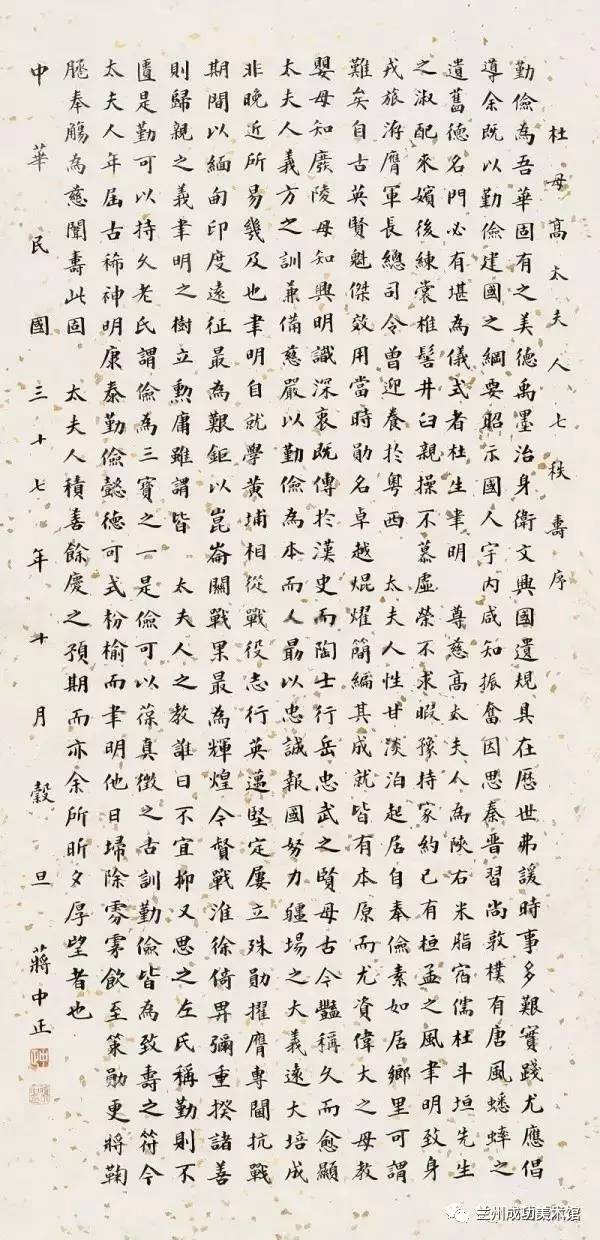 杜母高太夫人七秩壽序
勤儉為吾華固有之美德禹墨治身衛文興國遺規具在歷世弗諼時事多艱實踐尤應倡
導余既以勤儉建國之綱要昭示國人宇內咸知振奮因思秦晉習尚敦樸有唐風蟋蟀之
遺舊德名門必有堪為儀式者杜生聿明　尊慈高太夫人為陝右米脂宿儒杜斗垣先生
之淑配來嬪後練裳椎髻井臼親操不慕虛榮不求暇豫持家約己有桓孟之風聿明致身
戎旅洊膺軍長總司令曾迎養於粵西　太夫人性甘淡泊起居自奉儉素如居鄉里可謂
難矣自古英賢魁傑效用當時勛名卓越焜燿簡編其成就皆有本原而尤資偉大之母教
嬰母知廢陵母知興明識深衷既傳於漢史而陶士行岳忠武之賢母古今豔稱久而愈顯
太夫人義方之訓兼備慈嚴以勤儉為本而人勗以忠誠報國努力疆場之大義遠大培成
非晚近所易幾及也聿明自就學黃埔相從戰役志行英邁堅定屢立殊勛擢膺專閫抗戰
期間以緬甸印度遠征最為艱鉅以崑崙關戰果最為輝煌今督戰淮徐倚畀彌重揆諸善
則歸親之義聿明之樹立勳庸雖謂皆　太夫人之教誰曰不宜抑又思之左氏稱勤則不
匱是勤可以持久老氏謂儉為三寶之一是儉可以葆真徵之古訓勤儉皆為致壽之符今
太夫人年屆古稀神明康泰勤儉懿德可式枌榆而聿明他日埽除雰雺飲至策勛更將鞠
䠶奉觴為慈闈壽此固　太夫人積善餘慶之預期而亦余所昕夕厚望者也
中華民國三十七年十月穀旦　蔣中正
兰州成功美术馆